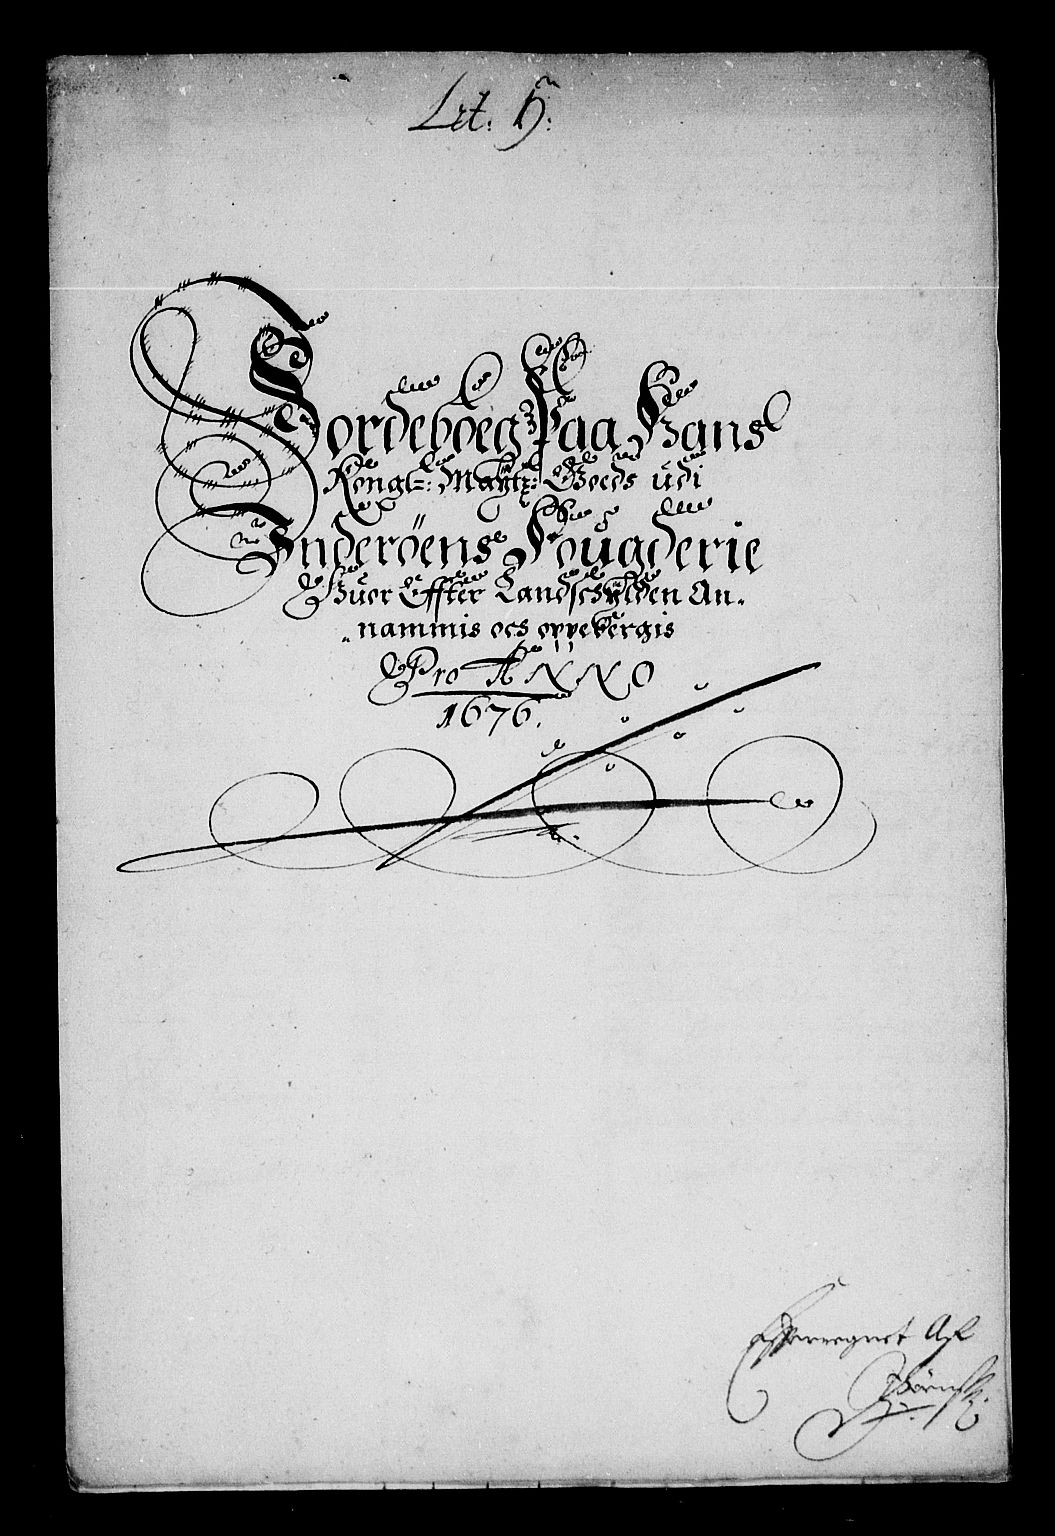 Lit. H:
Jordeboeg Paa Hans
Kongl: Maytz: Goeds udi
Inderöens Fougderie
Huor Effter Landschÿlden An-
nammis och oppebergis
Pro ANNO
1676.
Efterregnet Af